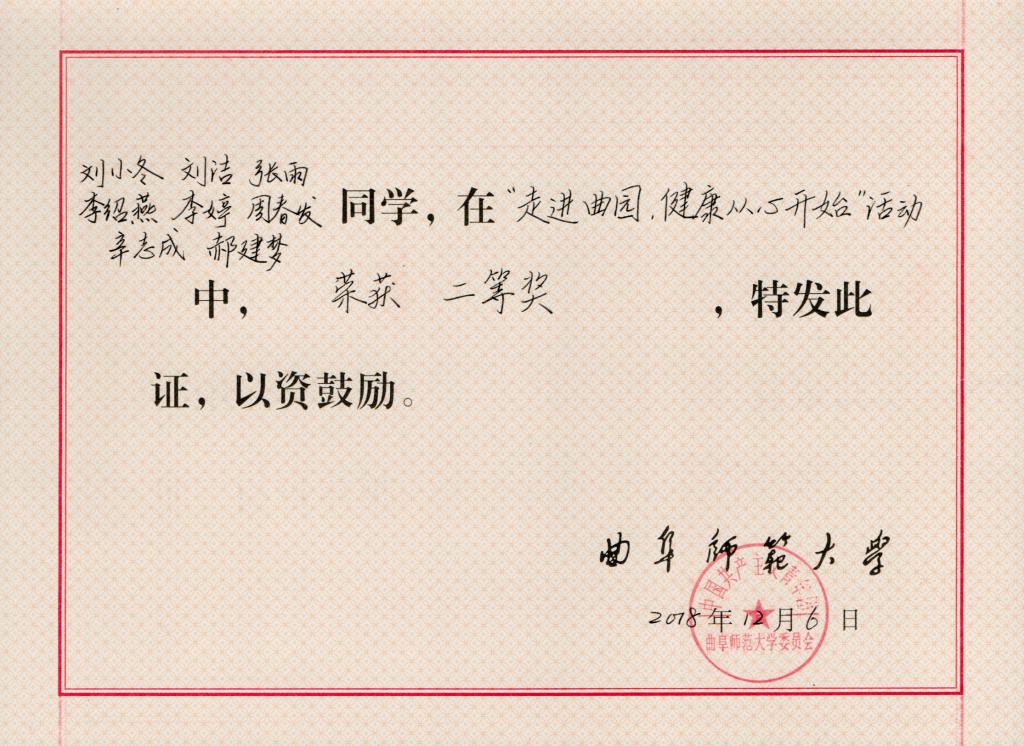 刘小冬 刘洁 张雨
李绍燕 李婷 周春发
辛志成 郝建梦
同学，在“走进曲园，健康从心开始”活动
中， 荣获 二等奖 ，特发此
证，以资鼓励。
曲阜师范大学
2018年12月6日
中国共产主义青年团
曲阜师范大学委员会